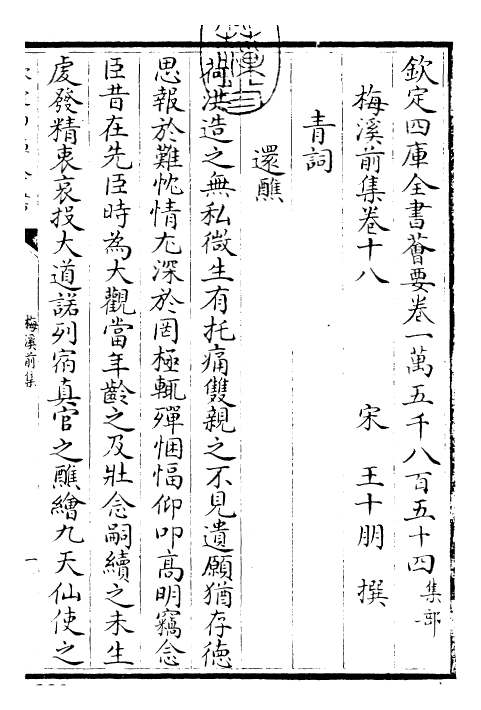 欽定四庫全書薈要卷一萬五千八百五十四集部
梅溪前集卷十八
宋 王十朋 撰
青詞
還醮
荷洪造之無私微生有托痛雙親之不見遺願猶存徳
思報於難忱情尤深於罔極輒殫悃愊仰叩髙明竊念
臣昔在先臣時為大觀當年齡之及壯念嗣續之未生
虔發精衷哀投大道諾列宿真官之醮繪九天仙使之
梅溪前集
一